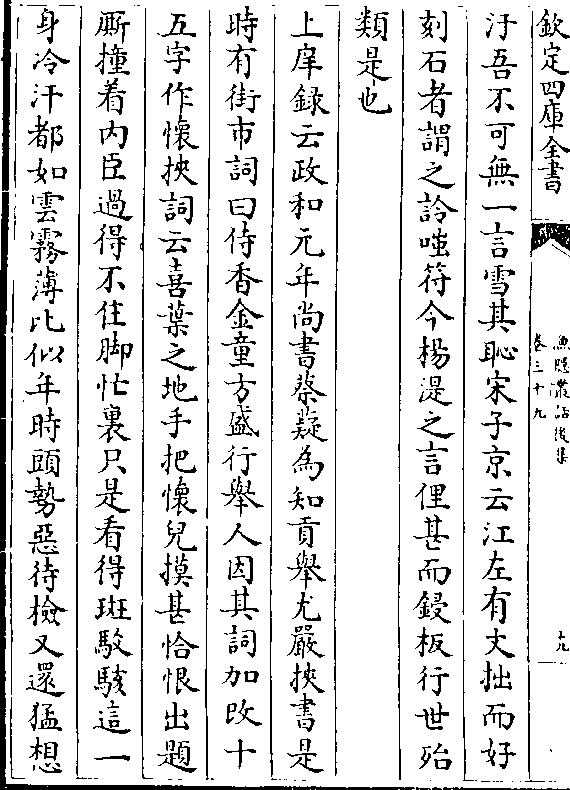 欽定四庫全書
漁隱叢話後集
卷三十九
十九
汙吾不可無一言雪其恥宋子京云江左有文拙而好
刻石者謂之詅嗤符今楊湜之言俚甚而鋟板行世殆
類是也
上庠錄云政和元年尚書蔡薿為知貢舉尤嚴挾書是
時有街市詞曰侍香金童方盛行舉人因其詞加改十
五字作懷挾詞云喜葉之地手把懷兒摸甚恰恨出題
厮撞着內臣過得不住脚忙裏只是看得斑駁駭這一
身冷汗都如雲霧薄比似年時頭勢惡待檢又還猛想